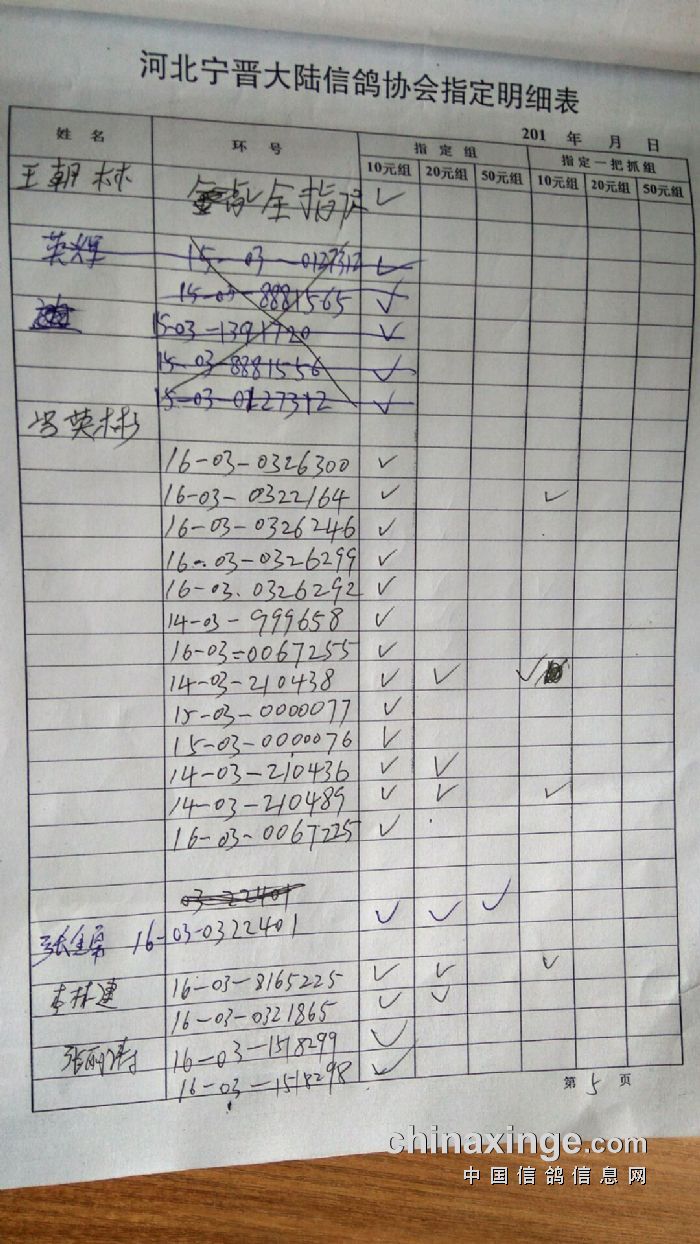 河北宁晋大陆信鸽协会指定明细表
201 年 月 日
姓名 环号 指定组 指定一把抓组
10元组 20元组 50元组 10元组 20元组 50元组
王朝林 全指定 ✓
英辉 15-03-0127312 ✓
15-03-8881565 ✓
15-03-1391720 ✓
15-03-8881556 ✓
15-03-0127312 ✓
冯英彬
16-03-0326300 ✓
16-03-0322164 ✓ ✓
16-03-0326246 ✓
16-03-0326299 ✓
16-03-0326292 ✓
14-03-999658 ✓
16-03-0067255 ✓
14-03-210438 ✓ ✓ ✓
15-03-0000077 ✓
15-03-0000076 ✓
14-03-210436 ✓ ✓
14-03-210489 ✓ ✓ ✓
16-03-0067225 ✓
03-22401
16-03-0322401 ✓ ✓ ✓
李林建 16-03-8165225 ✓ ✓ ✓
16-03-0321865 ✓ ✓
16-03-1518299 ✓
16-03-1518298 ✓
第 5 页
chinaxinge.com
中国信鸽信息网